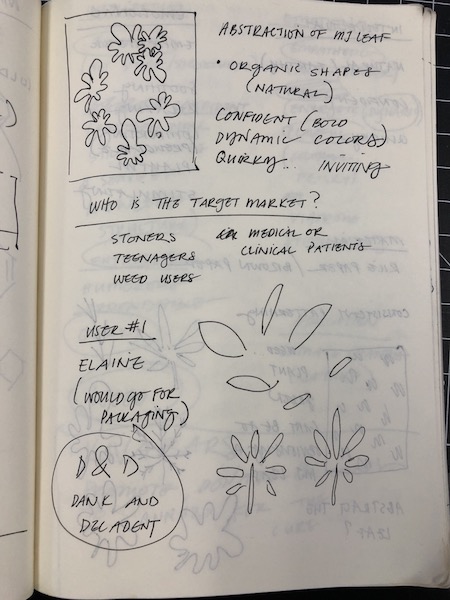 ABSTRACTION OF MJ LEAF
• ORGANIC SHAPES
(NATURAL)
CONFIDENT (BOLD
DYNAMIC COLORS)
QUIRKY... INVITING
WHO IS THE TARGET MARKET?
STONERS
TEENAGERS
WEED USERS
MEDICAL OR
CLINICAL PATIENTS
USER #1
ELAINE
(WOULD GO FOR
PACKAGING)
D & D
DANK AND
DECADENT